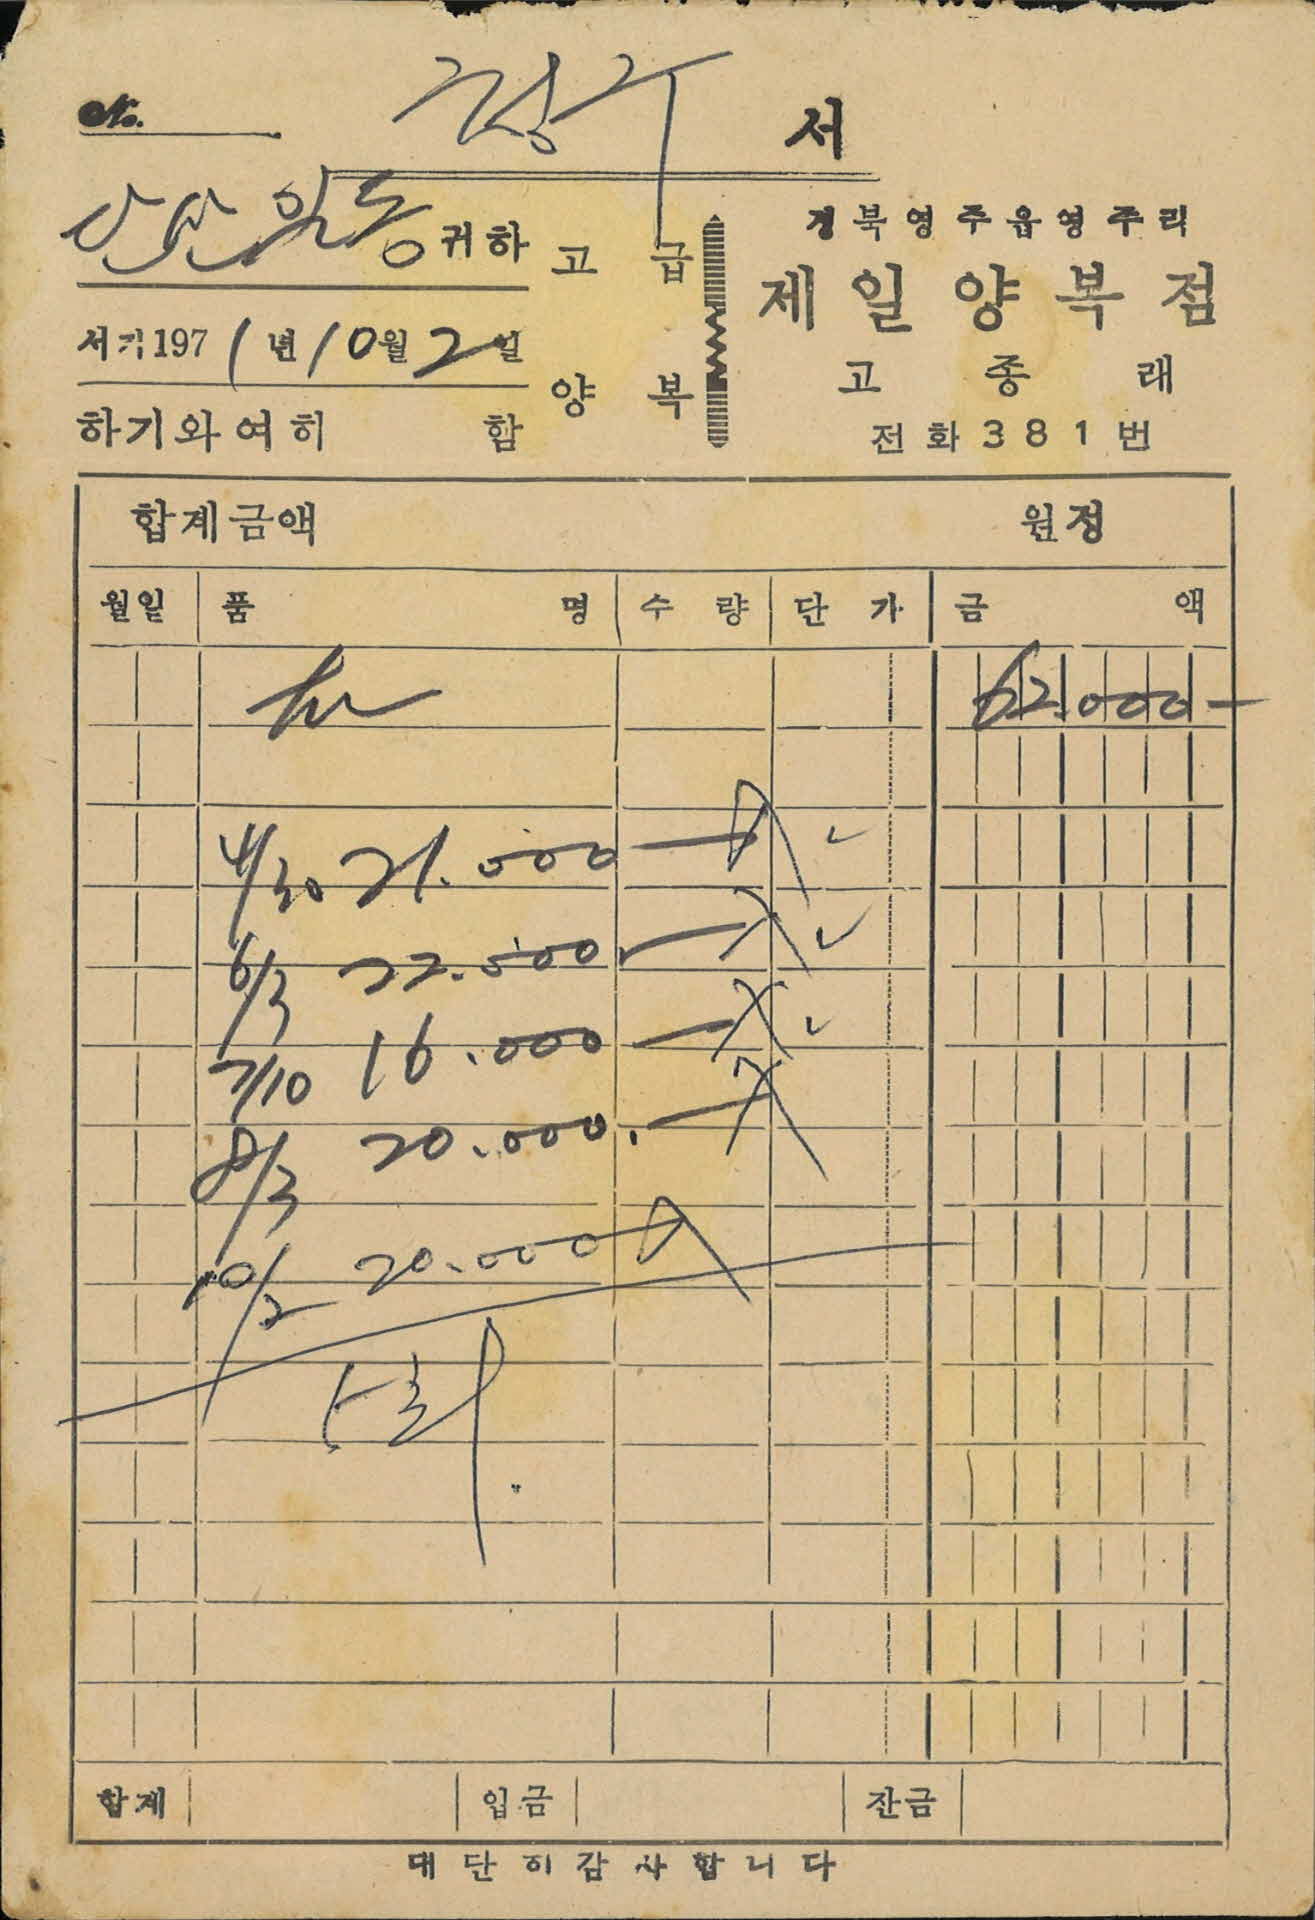 No.
청구 서
귀하
서기 1971년 10월 2일
하기와여히 함
고급
양복
경북영주읍영주리
제일양복점
고종래
전화381번
합계금액 원정
월일 품명 수량 단가 금액
62.000-
4/30 21.000
6/3 22.500
7/10 16.000
8/3 20.000.
10/2 20.000
합계 입금 잔금
대단히감사합니다